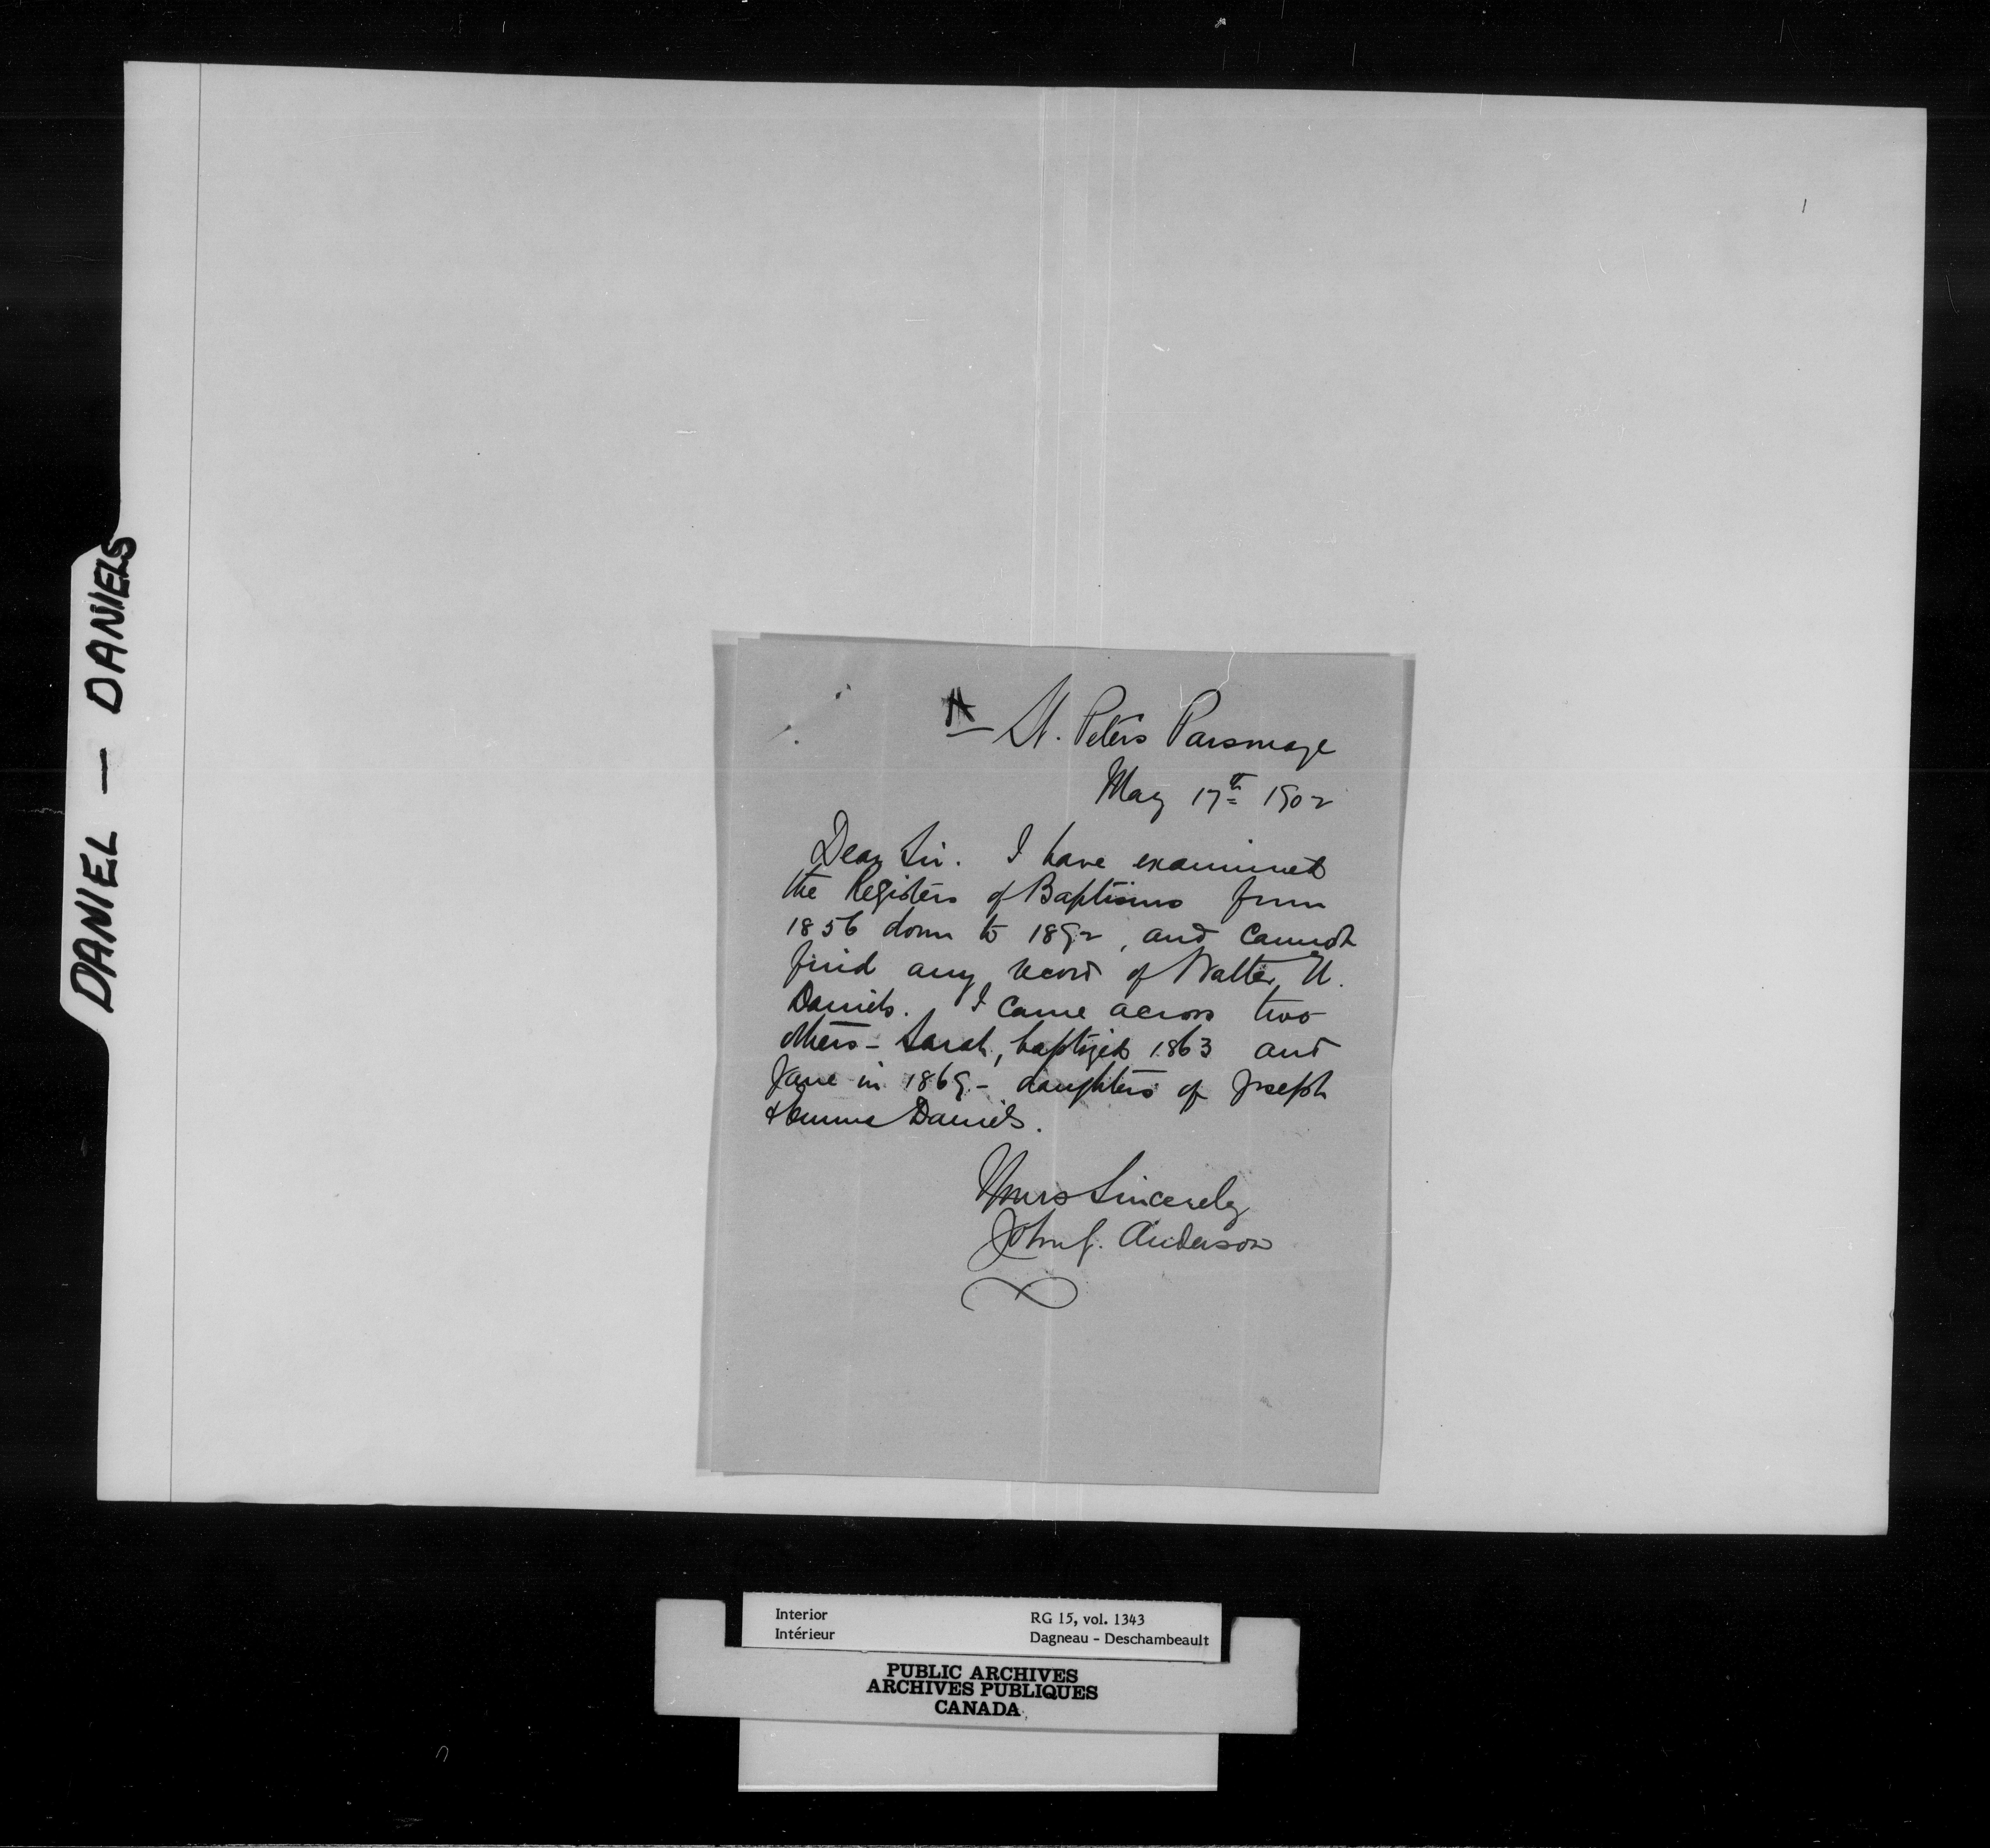 DANIEL — DANIELS
1
A
St. Peters Parsonage
May 17th 1902
Dear Sir. I have examined
the Registers of Baptisms from
1856 down to 1892, and cannot
find any record of Walter
Daniels. I came across two
others - Sarah, baptized 1863 and
Jane in 1869 - daughters of Joseph
& Daniels.
Yours Sincerely
John J. Anderson
Interior
Intérieur
RG 15, vol. 1343
Dagneau - Deschambeault
PUBLIC ARCHIVES
ARCHIVES PUBLIQUES
CANADA